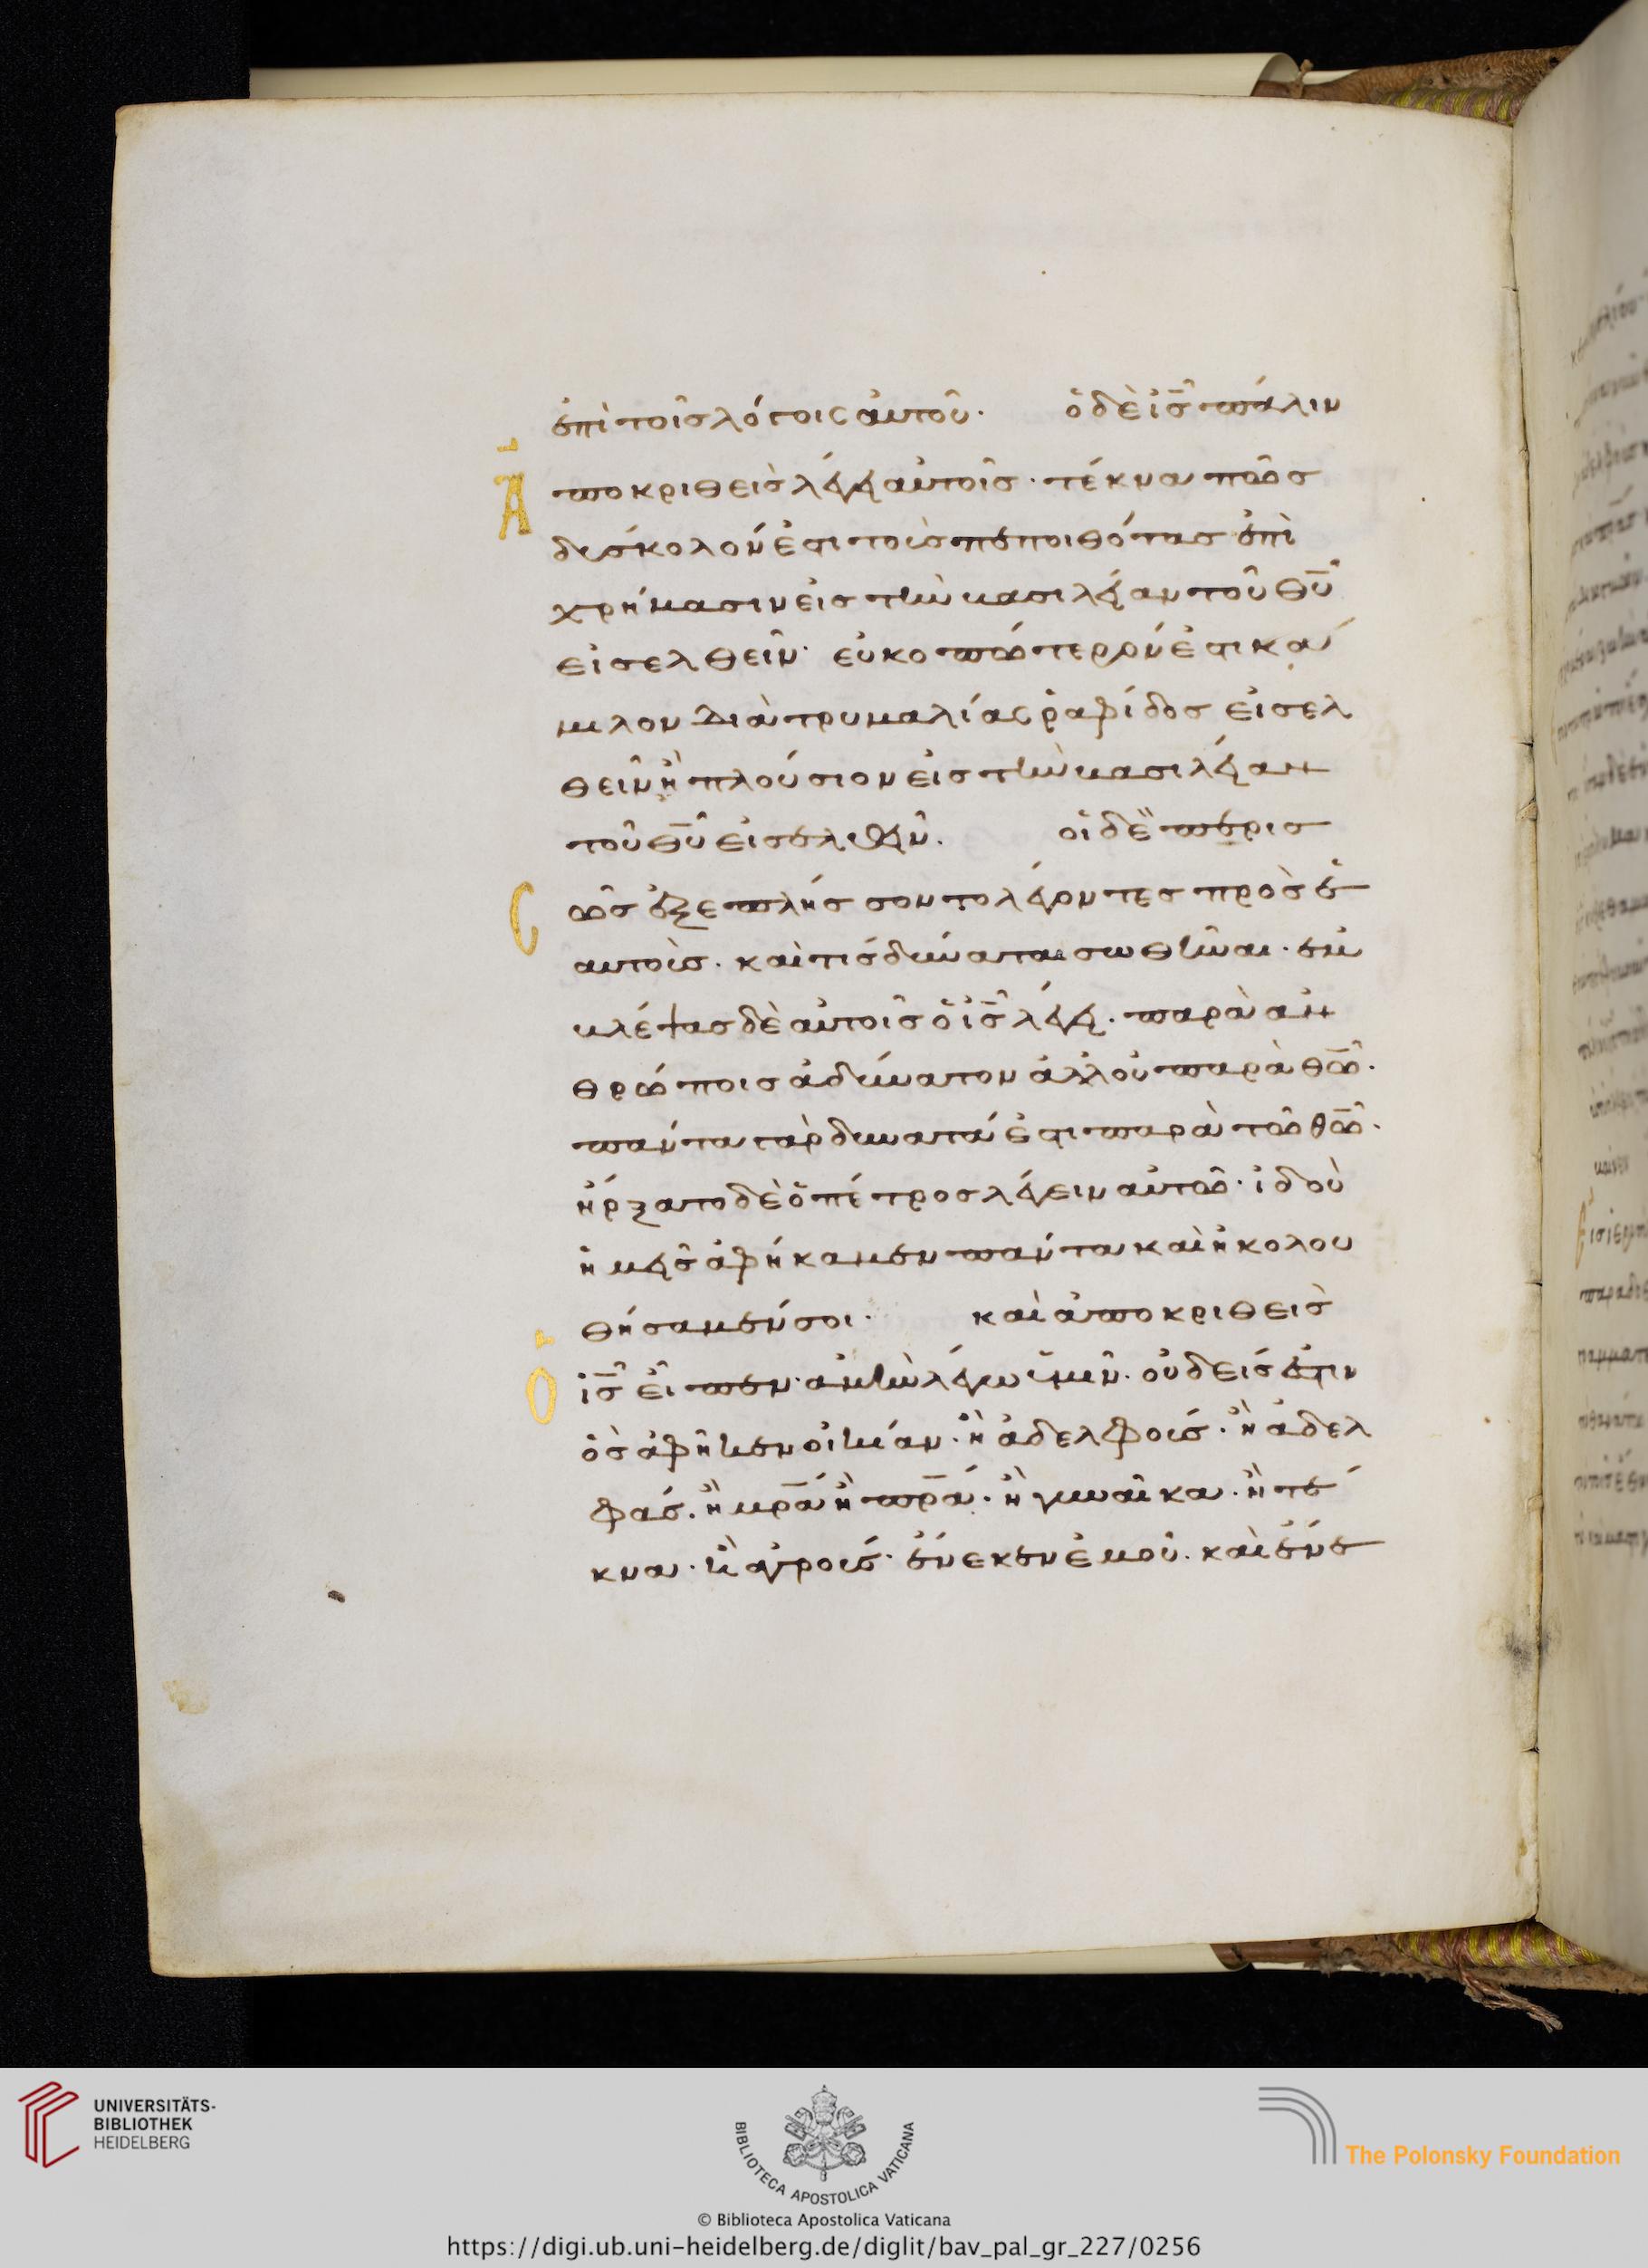 ἐπὶ τοῖς λόγοις αὐτοῦ· ὁ δὲ ἰς̅ πάλιν
Ἀποκριθεὶς λέγει αὐτοῖς· τέκνα πῶς
δύσκολόν ἐστι τοὺς πεποιθότας ἐπὶ
χρήμασιν εἰς τὴν βασιλείαν τοῦ θυ̅
εἰσελθεῖν· εὐκοπώτερόν ἐστι κά
μιλον διὰ τρυμαλίας ῥαφίδος εἰσελ
θεῖν ἢ πλούσιον εἰς τὴν βασιλείαν
τοῦ θυ̅ εἰσελθεῖν. οἱ δὲ περισ
Cῶς ἐξεπλήσσοντο λέγοντες πρὸς ἑ
αυτούς. καὶ τίς δύναται σωθῆναι· ἐμ
βλέψας δὲ αὐτοῖς ὁ ἰς̅ λέγει. παρὰ ἀν
θρώποις ἀδύνατον ἀλλ' οὐ παρὰ θω̅·
πάντα γὰρ δυνατά ἐστι παρὰ τῶ θω̅·
ἤρξατο δὲ ὁ πέτρος λέγειν αὐτῶ· ἰδοὺ
ἡμεῖς ἀφήκαμεν πάντα καὶ ἠκολου
θήσαμέν σοι· καὶ ἀποκριθεὶς
Ὁ ἰς̅ εἶπεν· ἀμὴν λέγω ὑμῖν· οὐδείς ἐστιν
ὃς ἀφῆκεν οἰκίαν· ἢ ἀδελφούς· ἢ ἀδελ
φάς. ἢ μρ̅α ἢ πρ̅α· ἢ γυναῖκα· ἢ τέ
κνα· ἢ ἀγρούς· ἕνεκεν ἐμοῦ. καὶ ἕνε
UNIVERSITÄTS-
BIBLIOTHEK
HEIDELBERG
BIBLIOTECA APOSTOLICA VATICANA
The Polonsky Foundation
© Biblioteca Apostolica Vaticana
https://digi.ub.uni-heidelberg.de/diglit/bav_pal_gr_227/0256